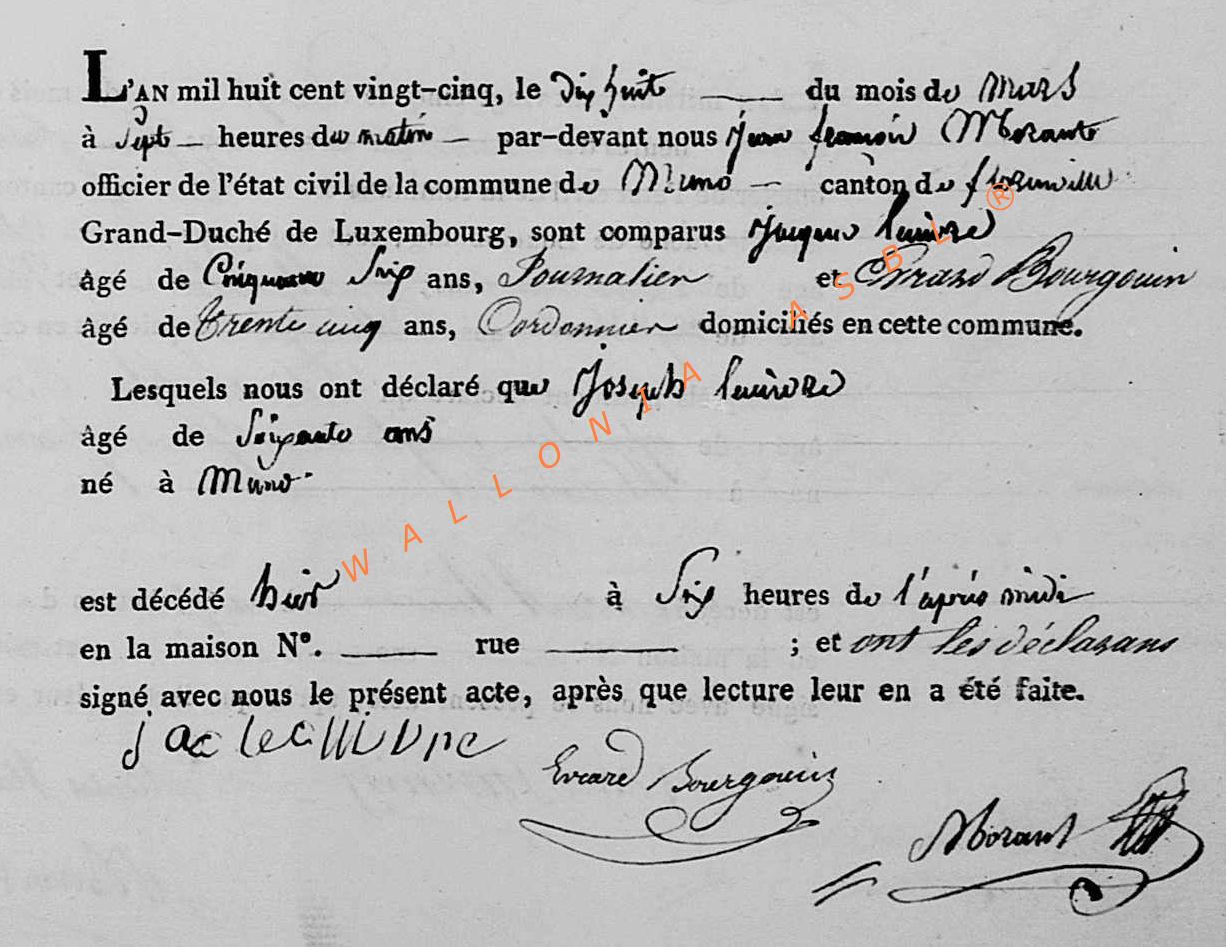 L'AN mil huit cent vingt-cinq, le dix huit du mois de mars
à sept heures du matin par-devant nous jean francois Morant
officier de l'état civil de la commune de Muno canton de florenville
Grand-Duché de Luxembourg, sont comparus Jacques
âgé de Cinquante Six ans, Journalier et Evrard Bourgouin
âgé de trente cinq ans, Cordonnier domiciliés en cette commune.
Lesquels nous ont déclaré que Joseph
âgé de Soixante ans
né à Muno
est décédé hier à Six heures de l'après midi
en la maison N°. rue ; et ont les déclarans
signé avec nous le présent acte, après que lecture leur en a été faite.
jac
Evrard Bourgouin
Morant
WALLONIA ASBL ®